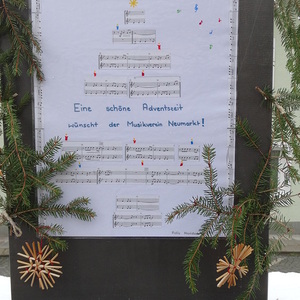 Eine schöne Adventszeit
wünscht der Musikverein Neumarkt!